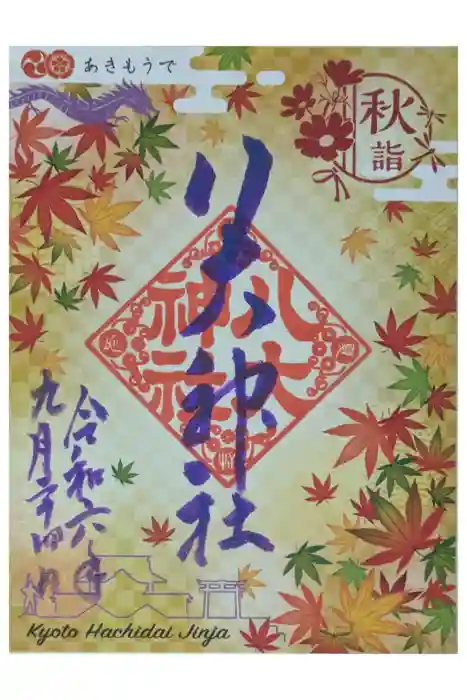 あきもうで
秋詣
八大神社
八大神社
令和六年
九月二十四日
Kyoto Hachidai Jinja